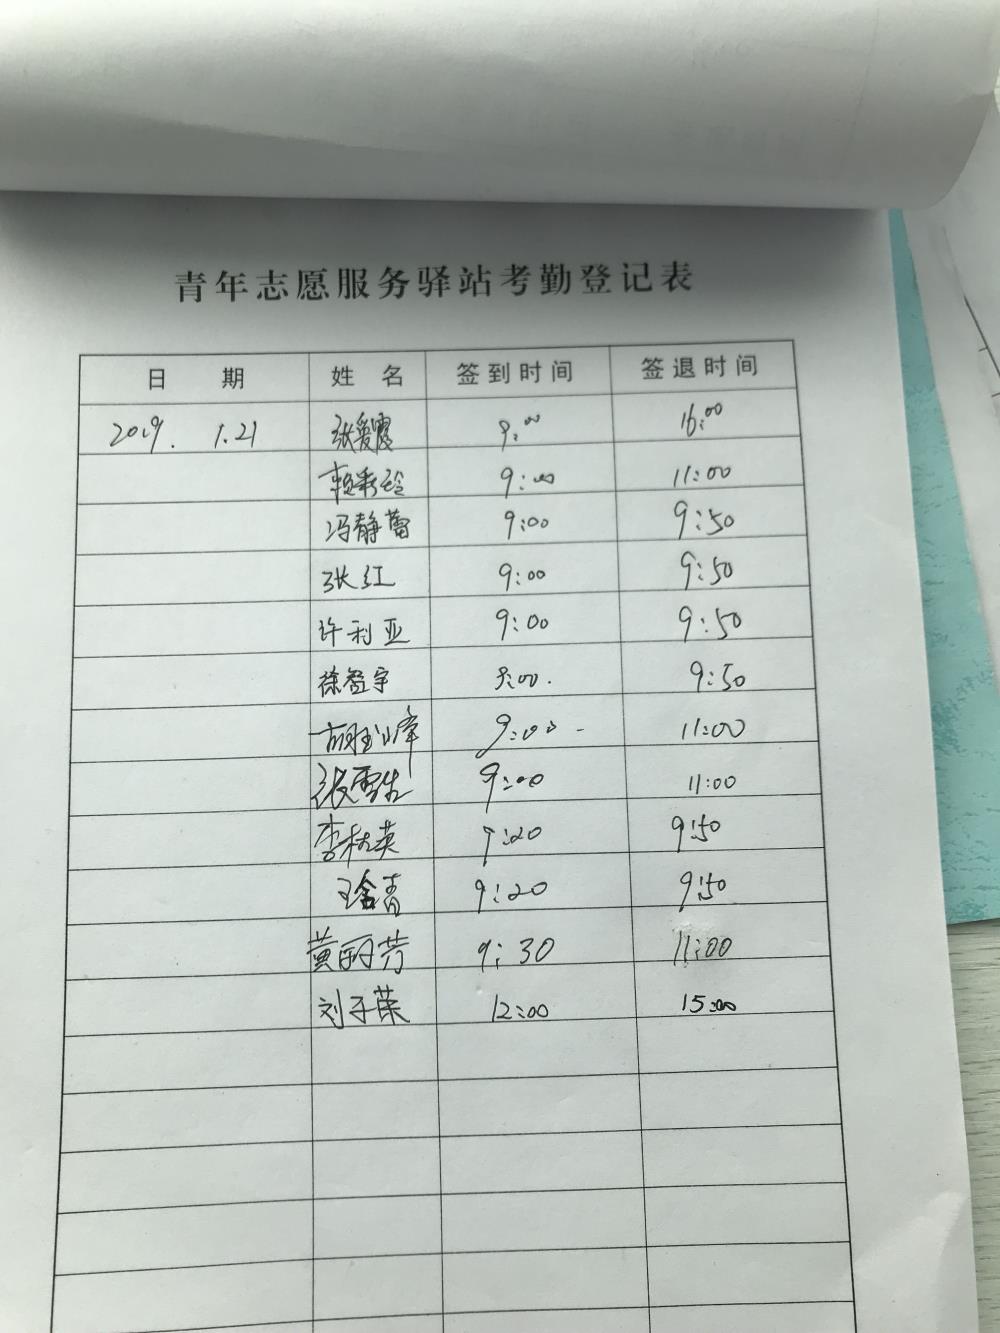 青年志愿服务驿站考勤登记表
日 期 姓 名 签到时间 签退时间
2019. 1.21 张爱霞 9:00 16:00
赖秀玲 9:00 11:00
冯静蕾 9:00 9:50
张红 9:00 9:50
许利亚 9:00 9:50
徐智宇 9:00. 9:50
胡玉峰 9:00 - 11:00
张雪生 9:00 11:00
李桂英 9:20 9:50
王含青 9:20 9:50
黄丽芳 9:30 11:00
刘子荣 12:00 15:00